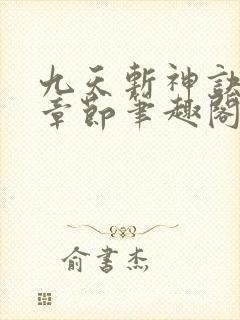 九天斩神訣
章節筆趣閣
俞書杰